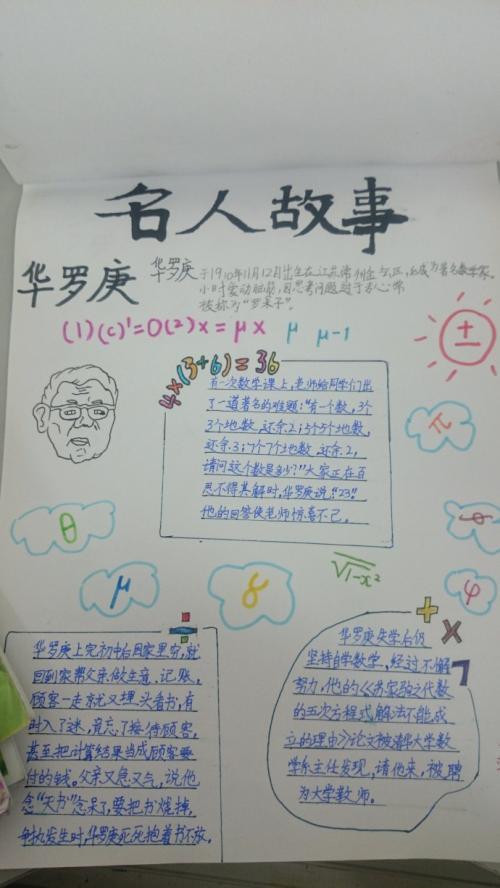 名人故事
华罗庚
华罗庚 于1910年11月12日出生在江苏常州金坛区,后成为著名数学家。
小时爱动脑筋,因思考问题过于专心常
被称为“罗呆子”。
(1)(c)'=0(2)x=μx μ μ-1
±
4×(3+6)=36
有一次数学课上,老师给同学们出
了一道著名的难题:“有一个数,3个
3个地数,还余2;5个5个地数,
还余3;7个7个地数,还余2,
请问这个数是多少?”大家正在百
思不得其解时,华罗庚说:“23!”
他的回答使老师惊喜不已。
π
θ
μ
8
√1-x²
φ
÷
+
×
华罗庚上完初中后因家里穷,就
回到家帮父亲做生意,记账,
顾客一走就又埋头看书,有
时入了迷,竟忘了接待顾客,
甚至把计算结果当成顾客要
付的钱。父亲又急又气,说他
念“天书”念呆了,要把书烧掉,
争执发生时,华罗庚死死抱着书不放。
华罗庚失学后仍
坚持自学数学,经过不懈
努力,他的《苏家驹之代数
的五次方程式解法不能成
立的理由》论文被清华大学数
学系主任发现,请他来,被聘
为大学教师。